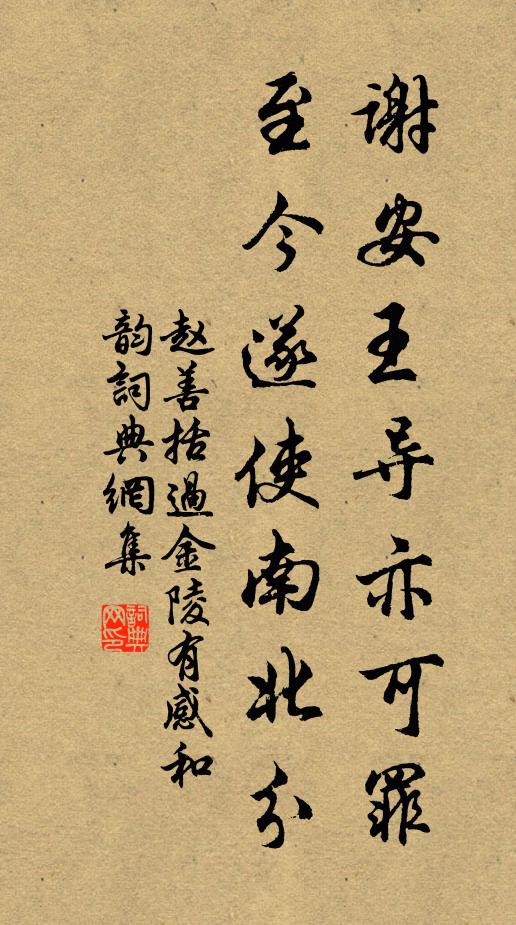 谢安王导亦可罪
至今遂使南北分
赵善括過金陵有感和
韵詞典網集
詞典
网印